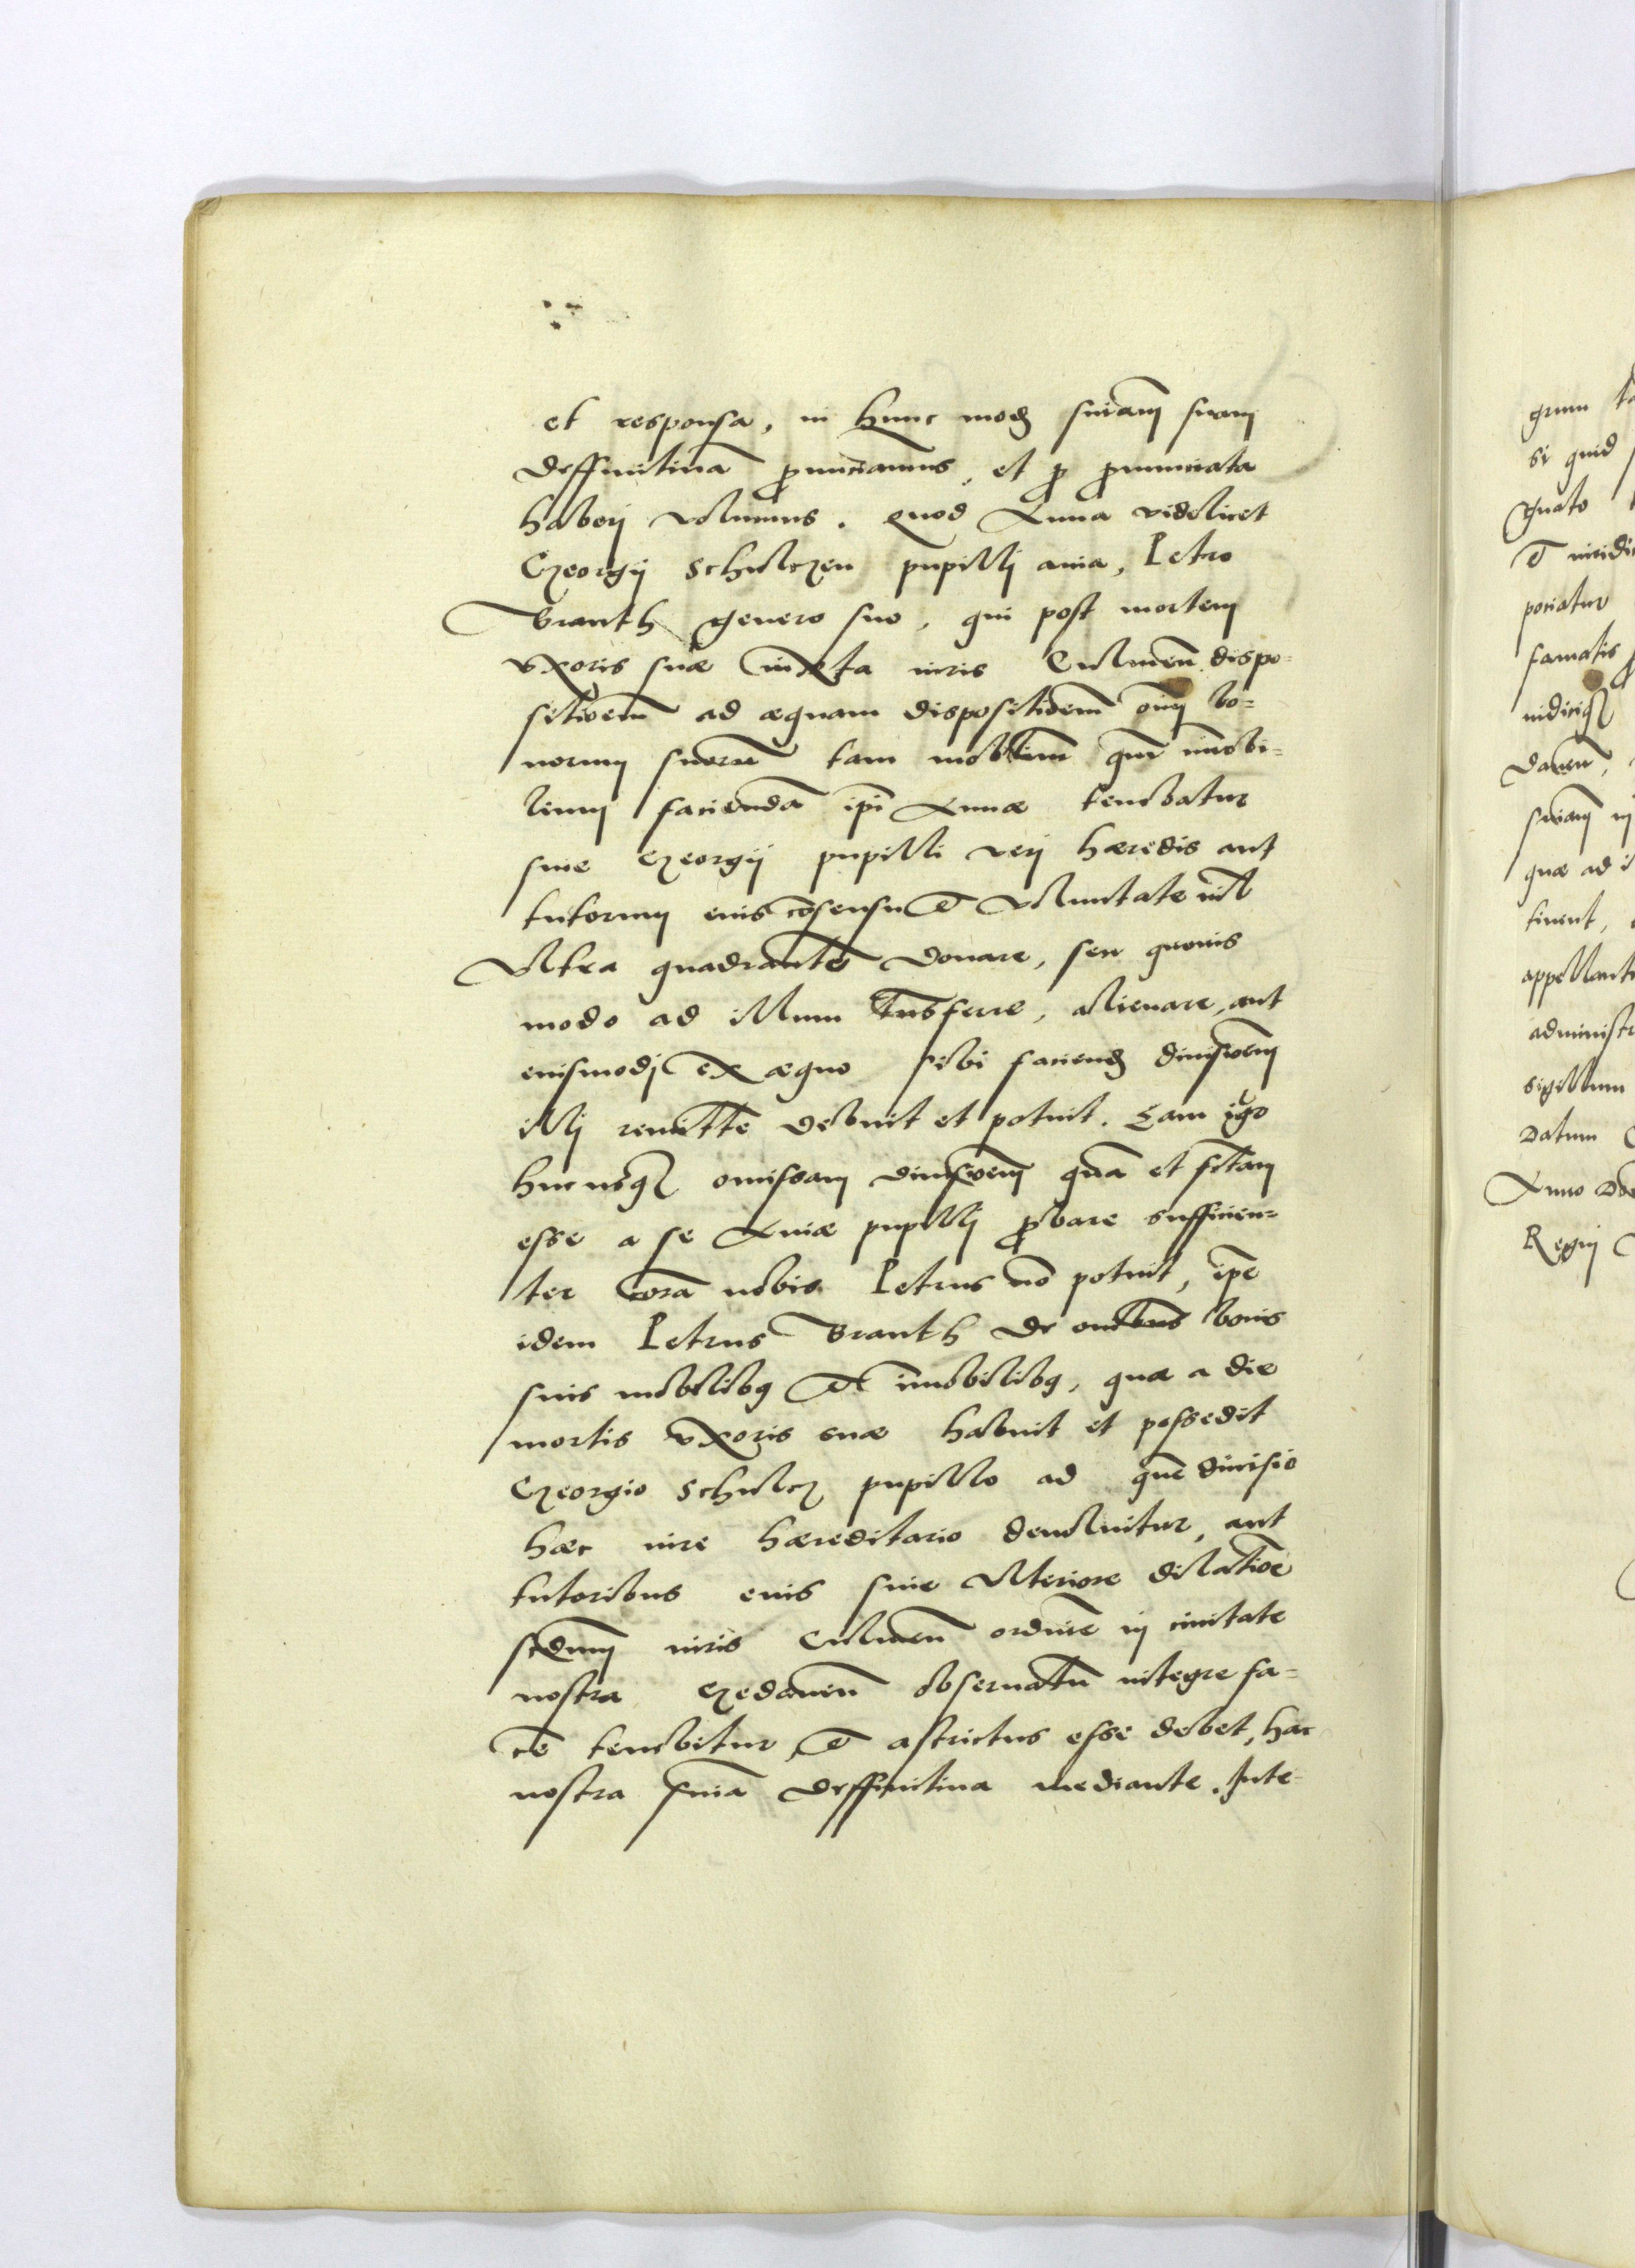 et responsa, in hunc modũ sniam̃ suam
deffinitiuã ꝓnunciamus, et ꝓ ꝓnunciata
haberj volumus. Quod Anna videlicet
Georgij Schulczen pupillj auia, Petro
Branth genero suo, qui post mortem
vxoris suæ iuxta iuris Culmeñ. dispo=
sitioem̃ ad æquam dispositioem̃ oĩm bo=
norum suorũ tam mobilium quã immobi=
lium faciendã ipi Annæ tenebatur
siue Georgij pupilli verj hæredis aut
tutorum eius cõsensu et voluntate nil
Vltra quadrantẽ donare, seu quouis
modo ad illum trñsferre, alienare, aut
eiusmodj ex æquo sibi faciendã diuisioem̃
illj remittẽ debuit et potuit. Eam igr̃
hucusq; omissam diuisioem̃ quã et factam
esse a se Auiæ pupillj ꝓbare sufficien=
ter corã nobis Petrus nõ potuit, ipẽ
idem Petrus Branth de omĩbus bonis
suis mobilibq et immobilibq, quæ a die
mortis vxoris suæ habuit et possedit
Georgio Schulcz pupillo ad quẽ diuisio
hæc iure hæreditario deuoluitur, aut
tutoribus eius sine vlteriore dilatioẽ
scdum iuris Culmeñ ordinẽ in ciuitate
nostra Gedaneñ obseruatũ integre fa=
cẽ tenebitur, et astrictus esse debet, hac
nostra sniã deffinitiua mediante. Inte=
grum
si quid
Gnato
et iuridic
ponatur
famatis
iudiciq;
Daneñ,
sniam̃ in
quæ ad i
tinent,
appellant
administr
sigillum
Datum
Anno Do
Regni